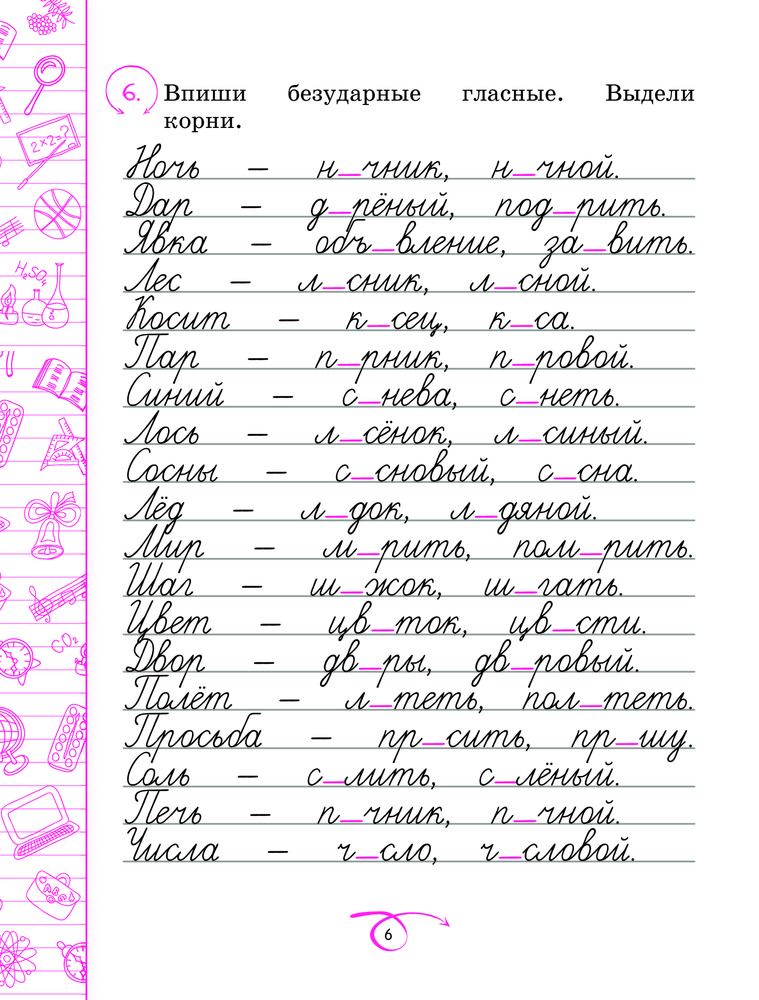 2×2=?
H₂SO₄
CO₂
АБВ
6. Впиши безударные гласные. Выдели
корни.
Ночь – н_чник, н_чной.
Дар – д_рёный, под_рить.
Явка – объ_вление, за_вить.
Лес – л_сник, л_сной.
Косит – к_сец, к_са.
Пар – п_рник, п_ровой.
Синий – с_нева, с_неть.
Лось – л_сёнок, л_синый.
Сосны – с_сновый, с_сна.
Лёд – л_док, л_дяной.
Мир – м_рить, пом_рить.
Шаг – ш_жок, ш_гать.
Цвет – цв_ток, цв_сти.
Двор – дв_ры, дв_ровый.
Полёт – л_теть, пол_теть.
Просьба – пр_сить, пр_шу.
Соль – с_лить, с_лёный.
Печь – п_чник, п_чной.
Числа – ч_сло, ч_словой.
6